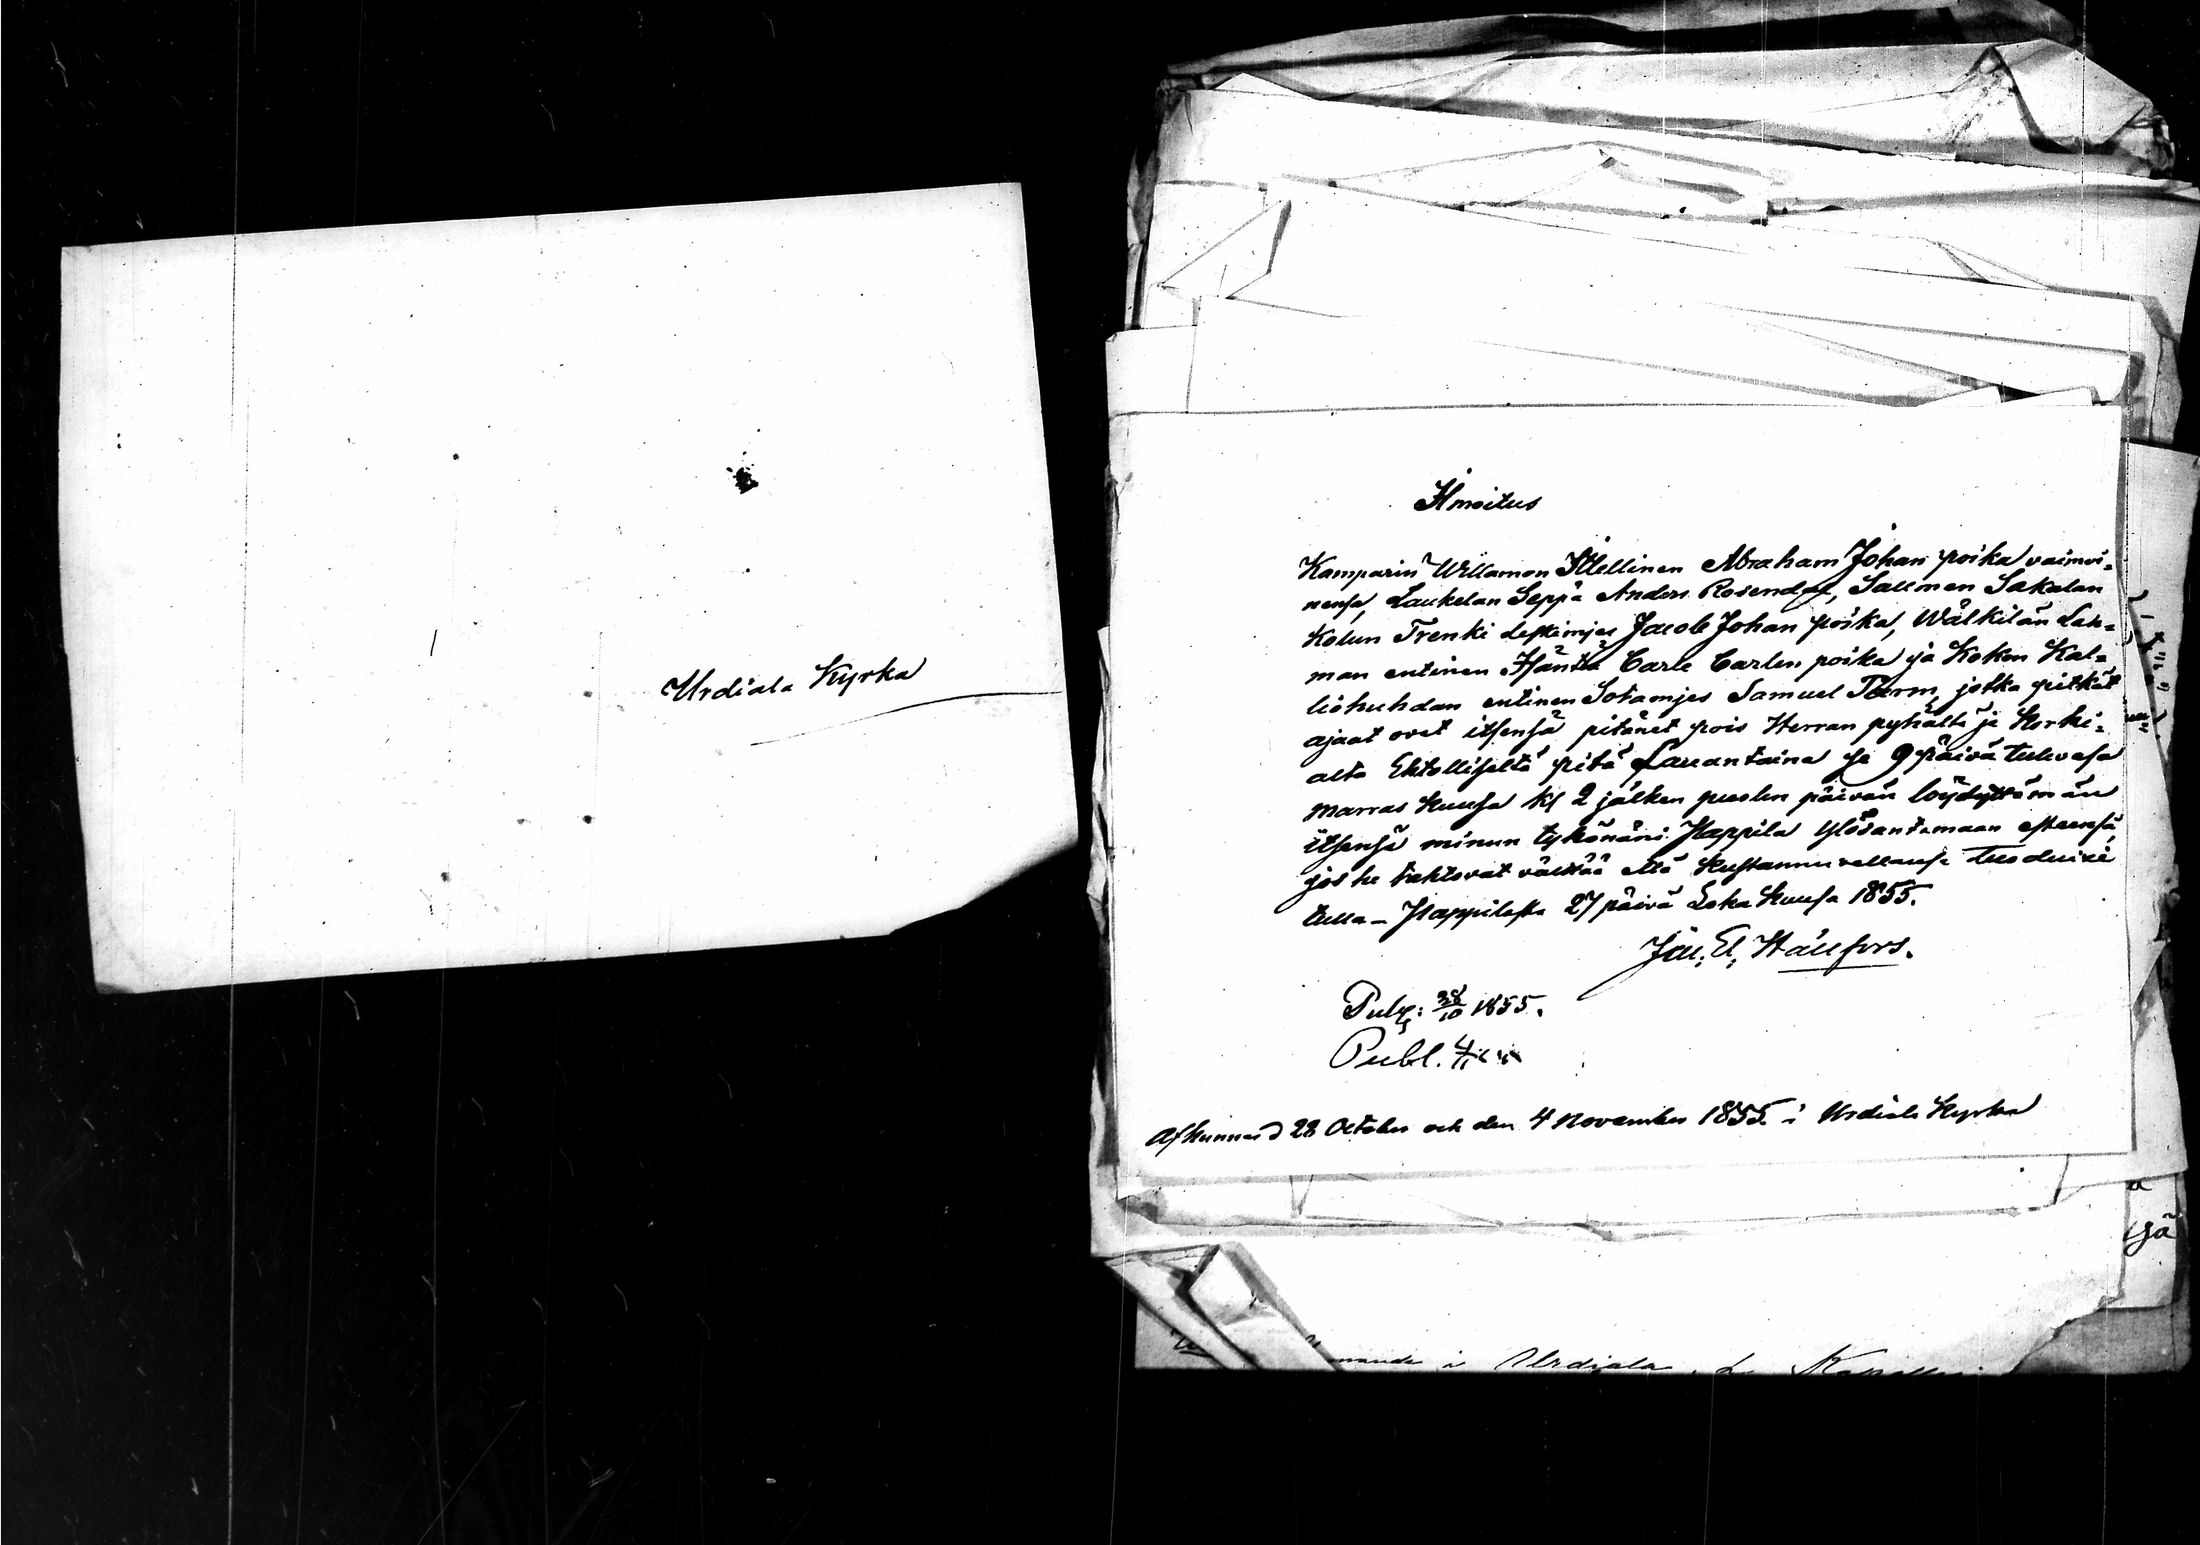 Urdiala Kyrka
Ilmoitus
Kamparin Willamon Itellinen Abraham Johan poika vaimoi-
nensa, Laukelan Seppä Anders Rosendal, Salmen Sakalan
Kolun Trenki Leskimjes Jacob Johan poika, Wälkilän Lah-
man entinen Isäntä Carle Carlen poika ja Koken Kal-
liohuhdan entinen Sotamjes Samuel Term, jotka pitkät
ajaat ovat itsensä pitänet pois Herran pyhältä ja korki-
alta Ehtolliselta pitä Lauantaina se 9 päivä tulevasa
marras kuusa kl 2 jälken puolen päivän löydyttämän
itsensä minun tykönäni Happila ylösantamaan esteensä,
jos he tahtovat välttää että kustannuxellansa tuoduixi
tulla - Happilasta 27 päivä Loka kuusa 1855.
Joh. El. Hällfors.
Pulp: 28/10 1855.
Publ. 4/11
Afkunnad 28 October och den 4 November 1855. i Urdiala Kyrka
ysä
i Urdiala